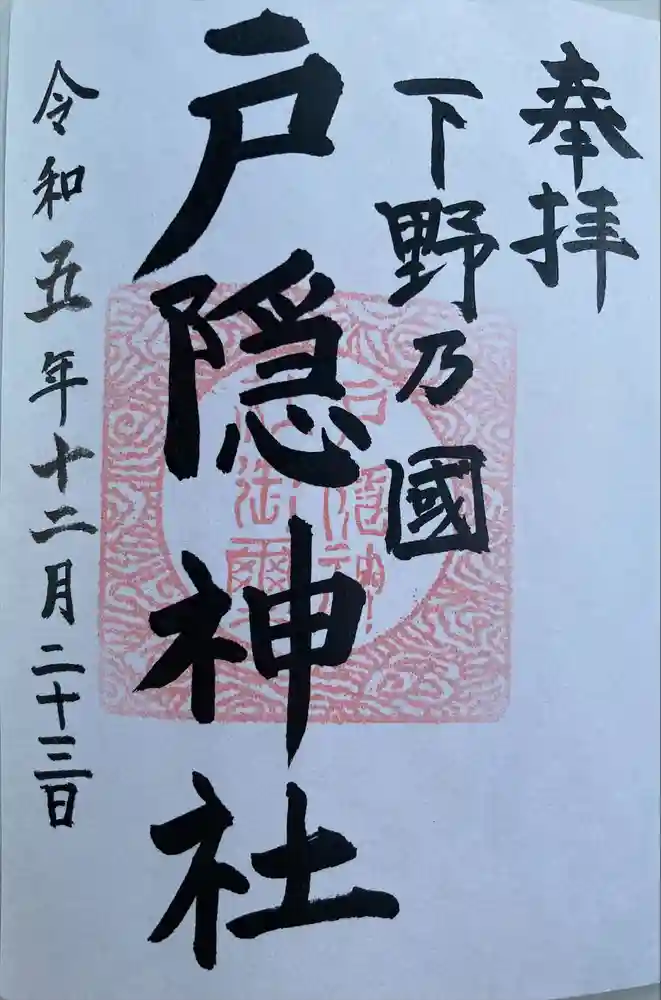 奉拝
下野乃國
戸隠神社
戸隠神
社御璽
令和五年十二月二十三日